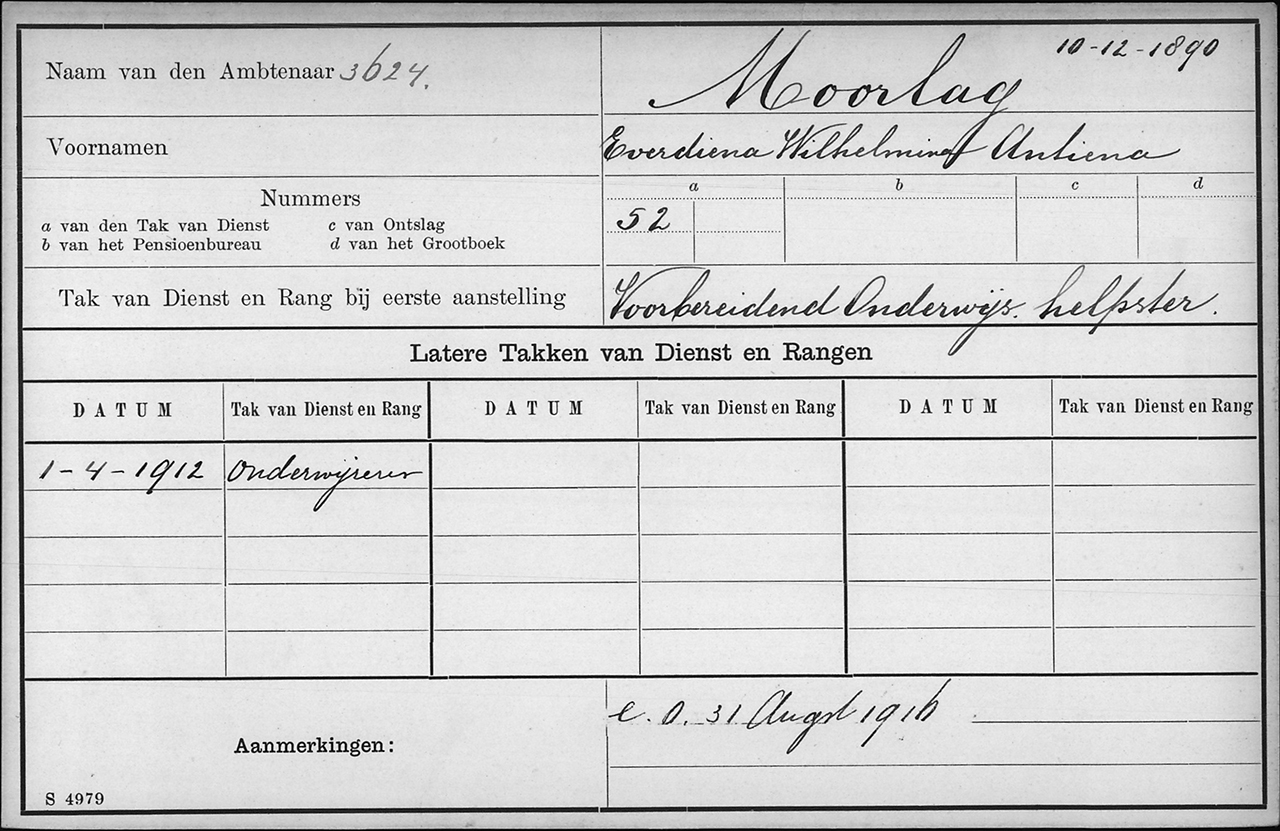 Naam van den Ambtenaar 3624. Moorlag 10-12-1890
Voornamen Everdiena Wilhelmina Antiena
Nummers
a b c d
a van den Tak van Dienst c van Ontslag
b van het Pensioenbureau d van het Grootboek
52
Tak van Dienst en Rang bij eerste aanstelling Voorbereidend Onderwijs. helpster.
Latere Takken van Dienst en Rangen
DATUM Tak van Dienst en Rang DATUM Tak van Dienst en Rang DATUM Tak van Dienst en Rang
1-4-1912 Onderwijzeres
e.o. 31 Augst 1916
Aanmerkingen:
S 4979